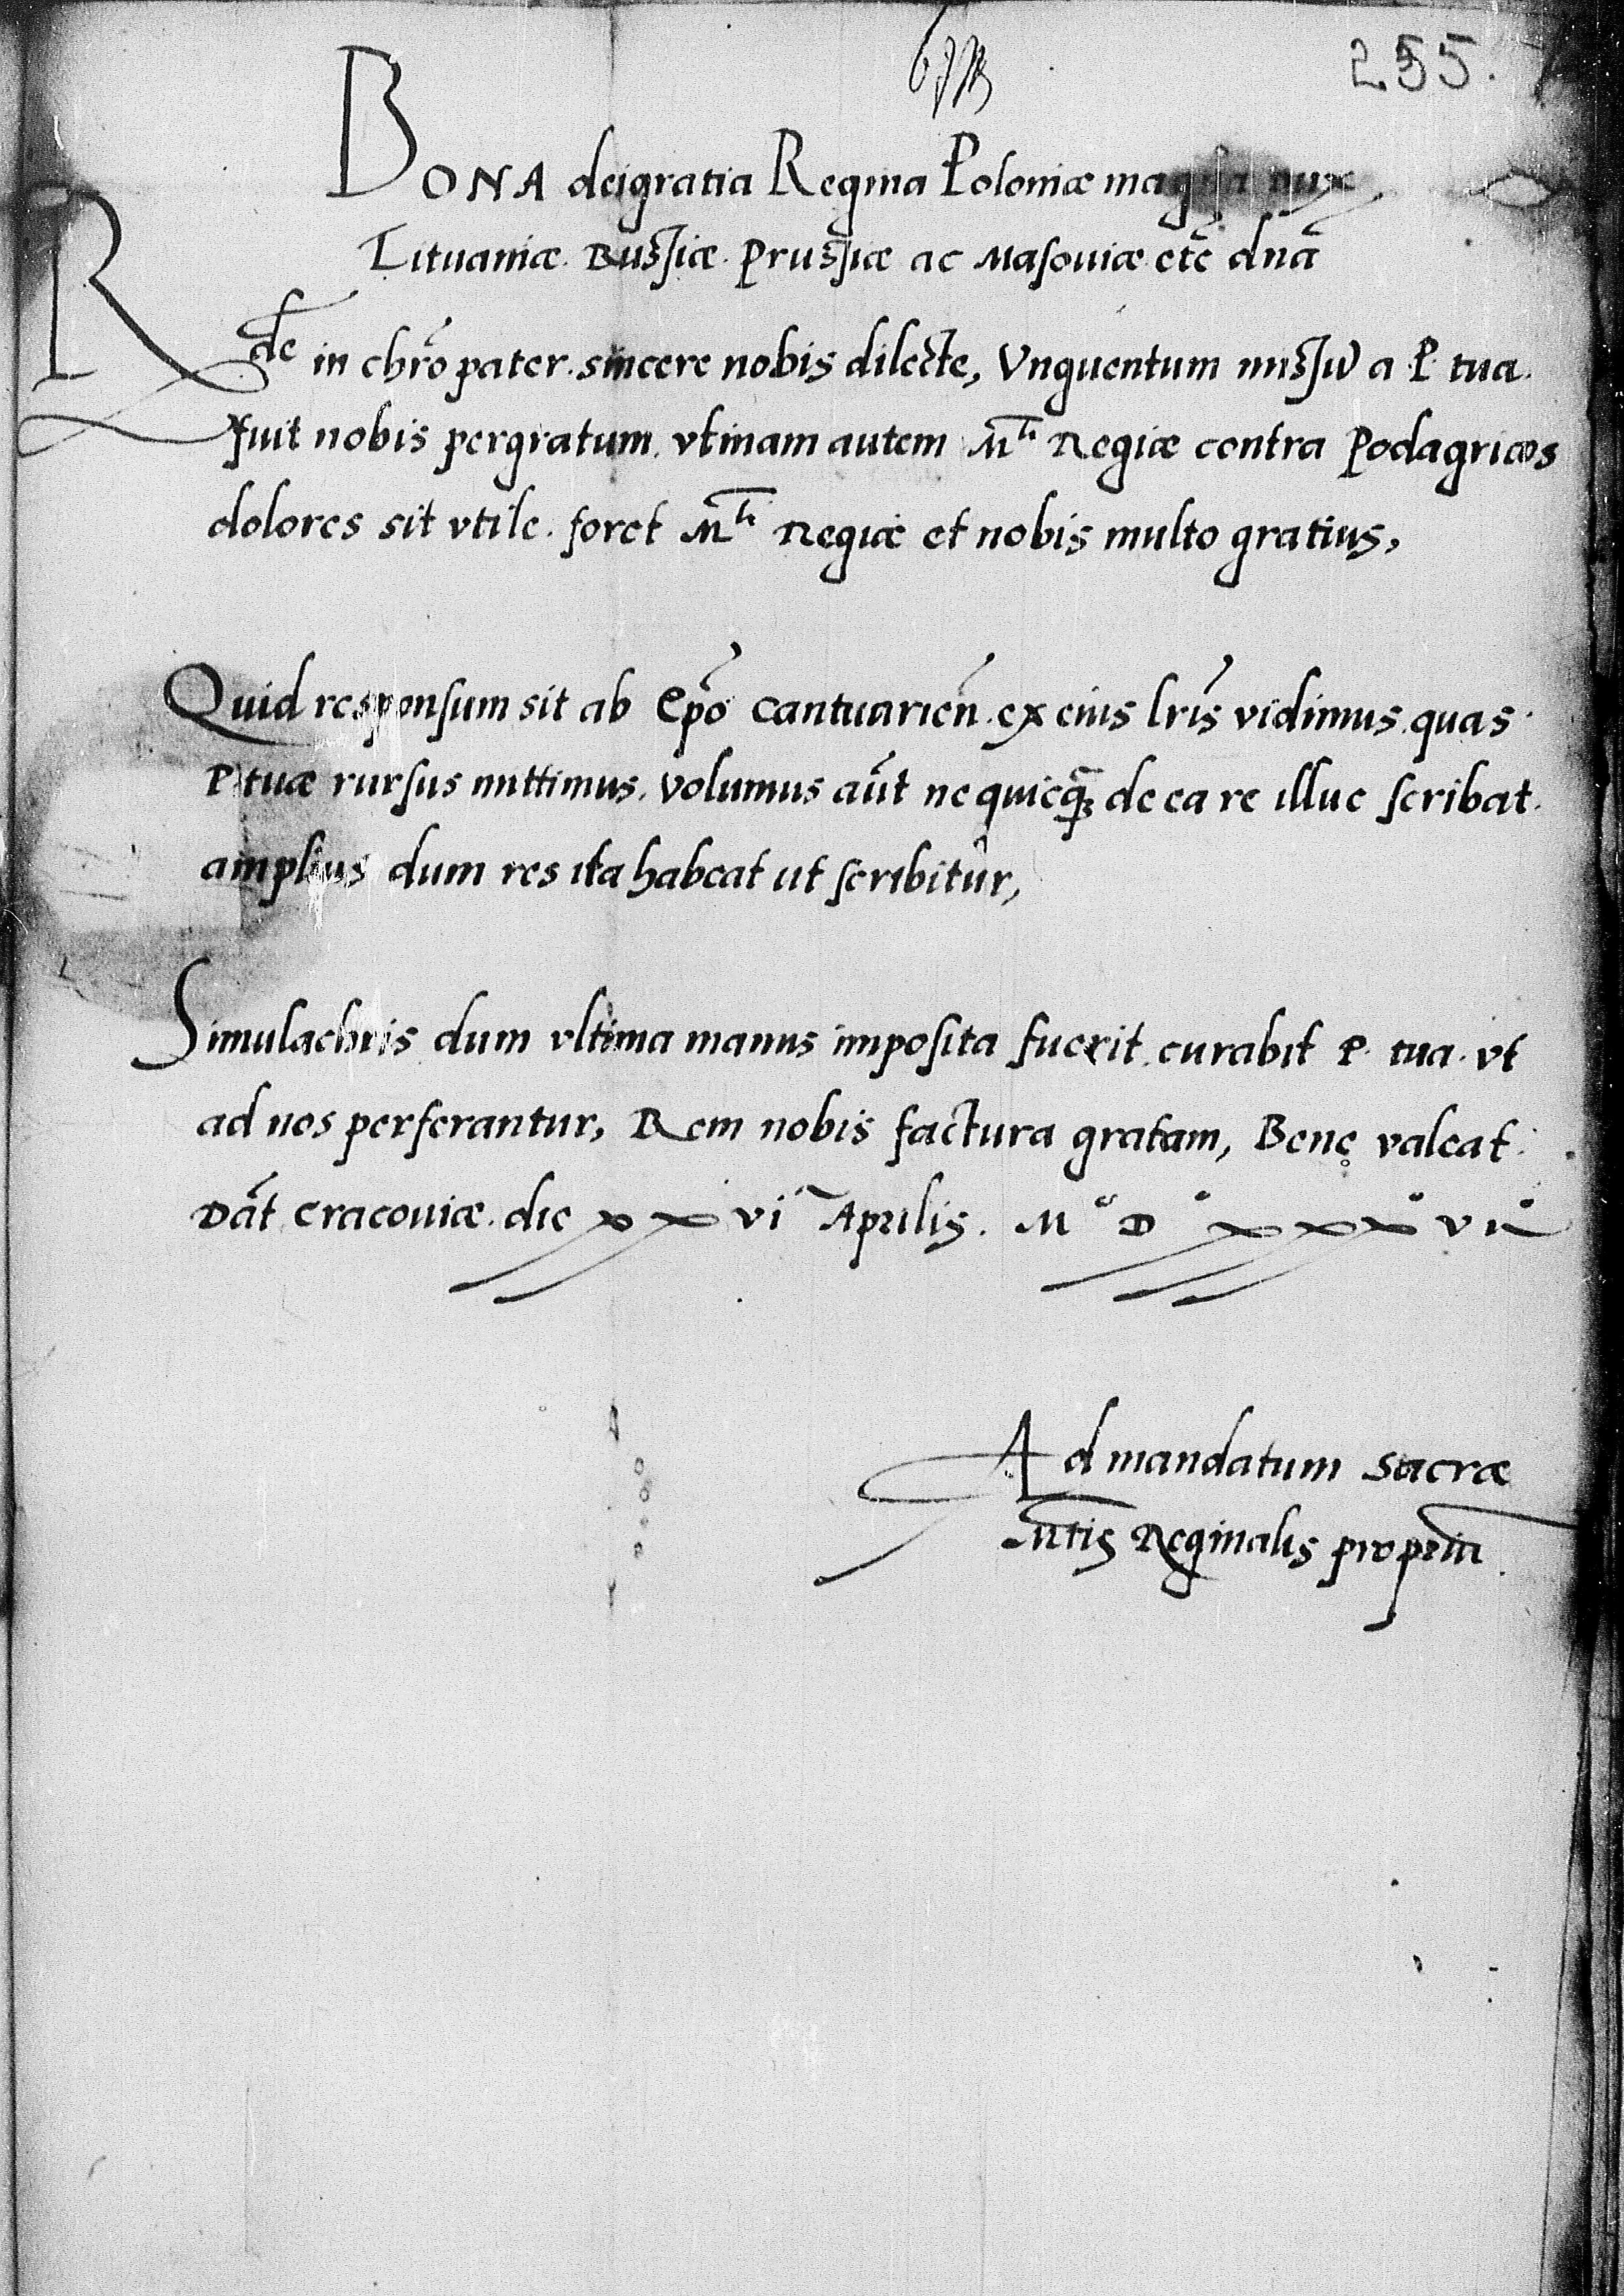 255.
BONA dei gratia Regina Poloniæ magna dux
Lituaniæ. Russiæ. Prussiæ ac Masouiæ etc̃ dña
Rde in chr̃o pater. sincere nobis dilecte, Vnguentum missũ a P. tua.
fuit nobis pergratum. vtinam autem Mti Regiæ contra Podagricos
dolores sit vtile. foret Mti Regiæ et nobis multo gratius,
Quid responsum sit ab Ep̃o Cantuarieñ. ex eius lr̃is vidimus. quas
P. tuæ rursus mittimus. volumus aũt ne quicq̃ȝ de ea re illuc scribat.
amplius dum res ita habeat ut scribitur,
Simulachris dum vltima manus imposita fuerit. curabit P. tua. vt
ad nos perferantur, Rem nobis factura gratam, Bene valeat.
Dãt Cracouiæ. die xxvi Aprilis. Mo Do xxxo vii
Ad mandatum Sacræ
Mtis Reginalis propriũ